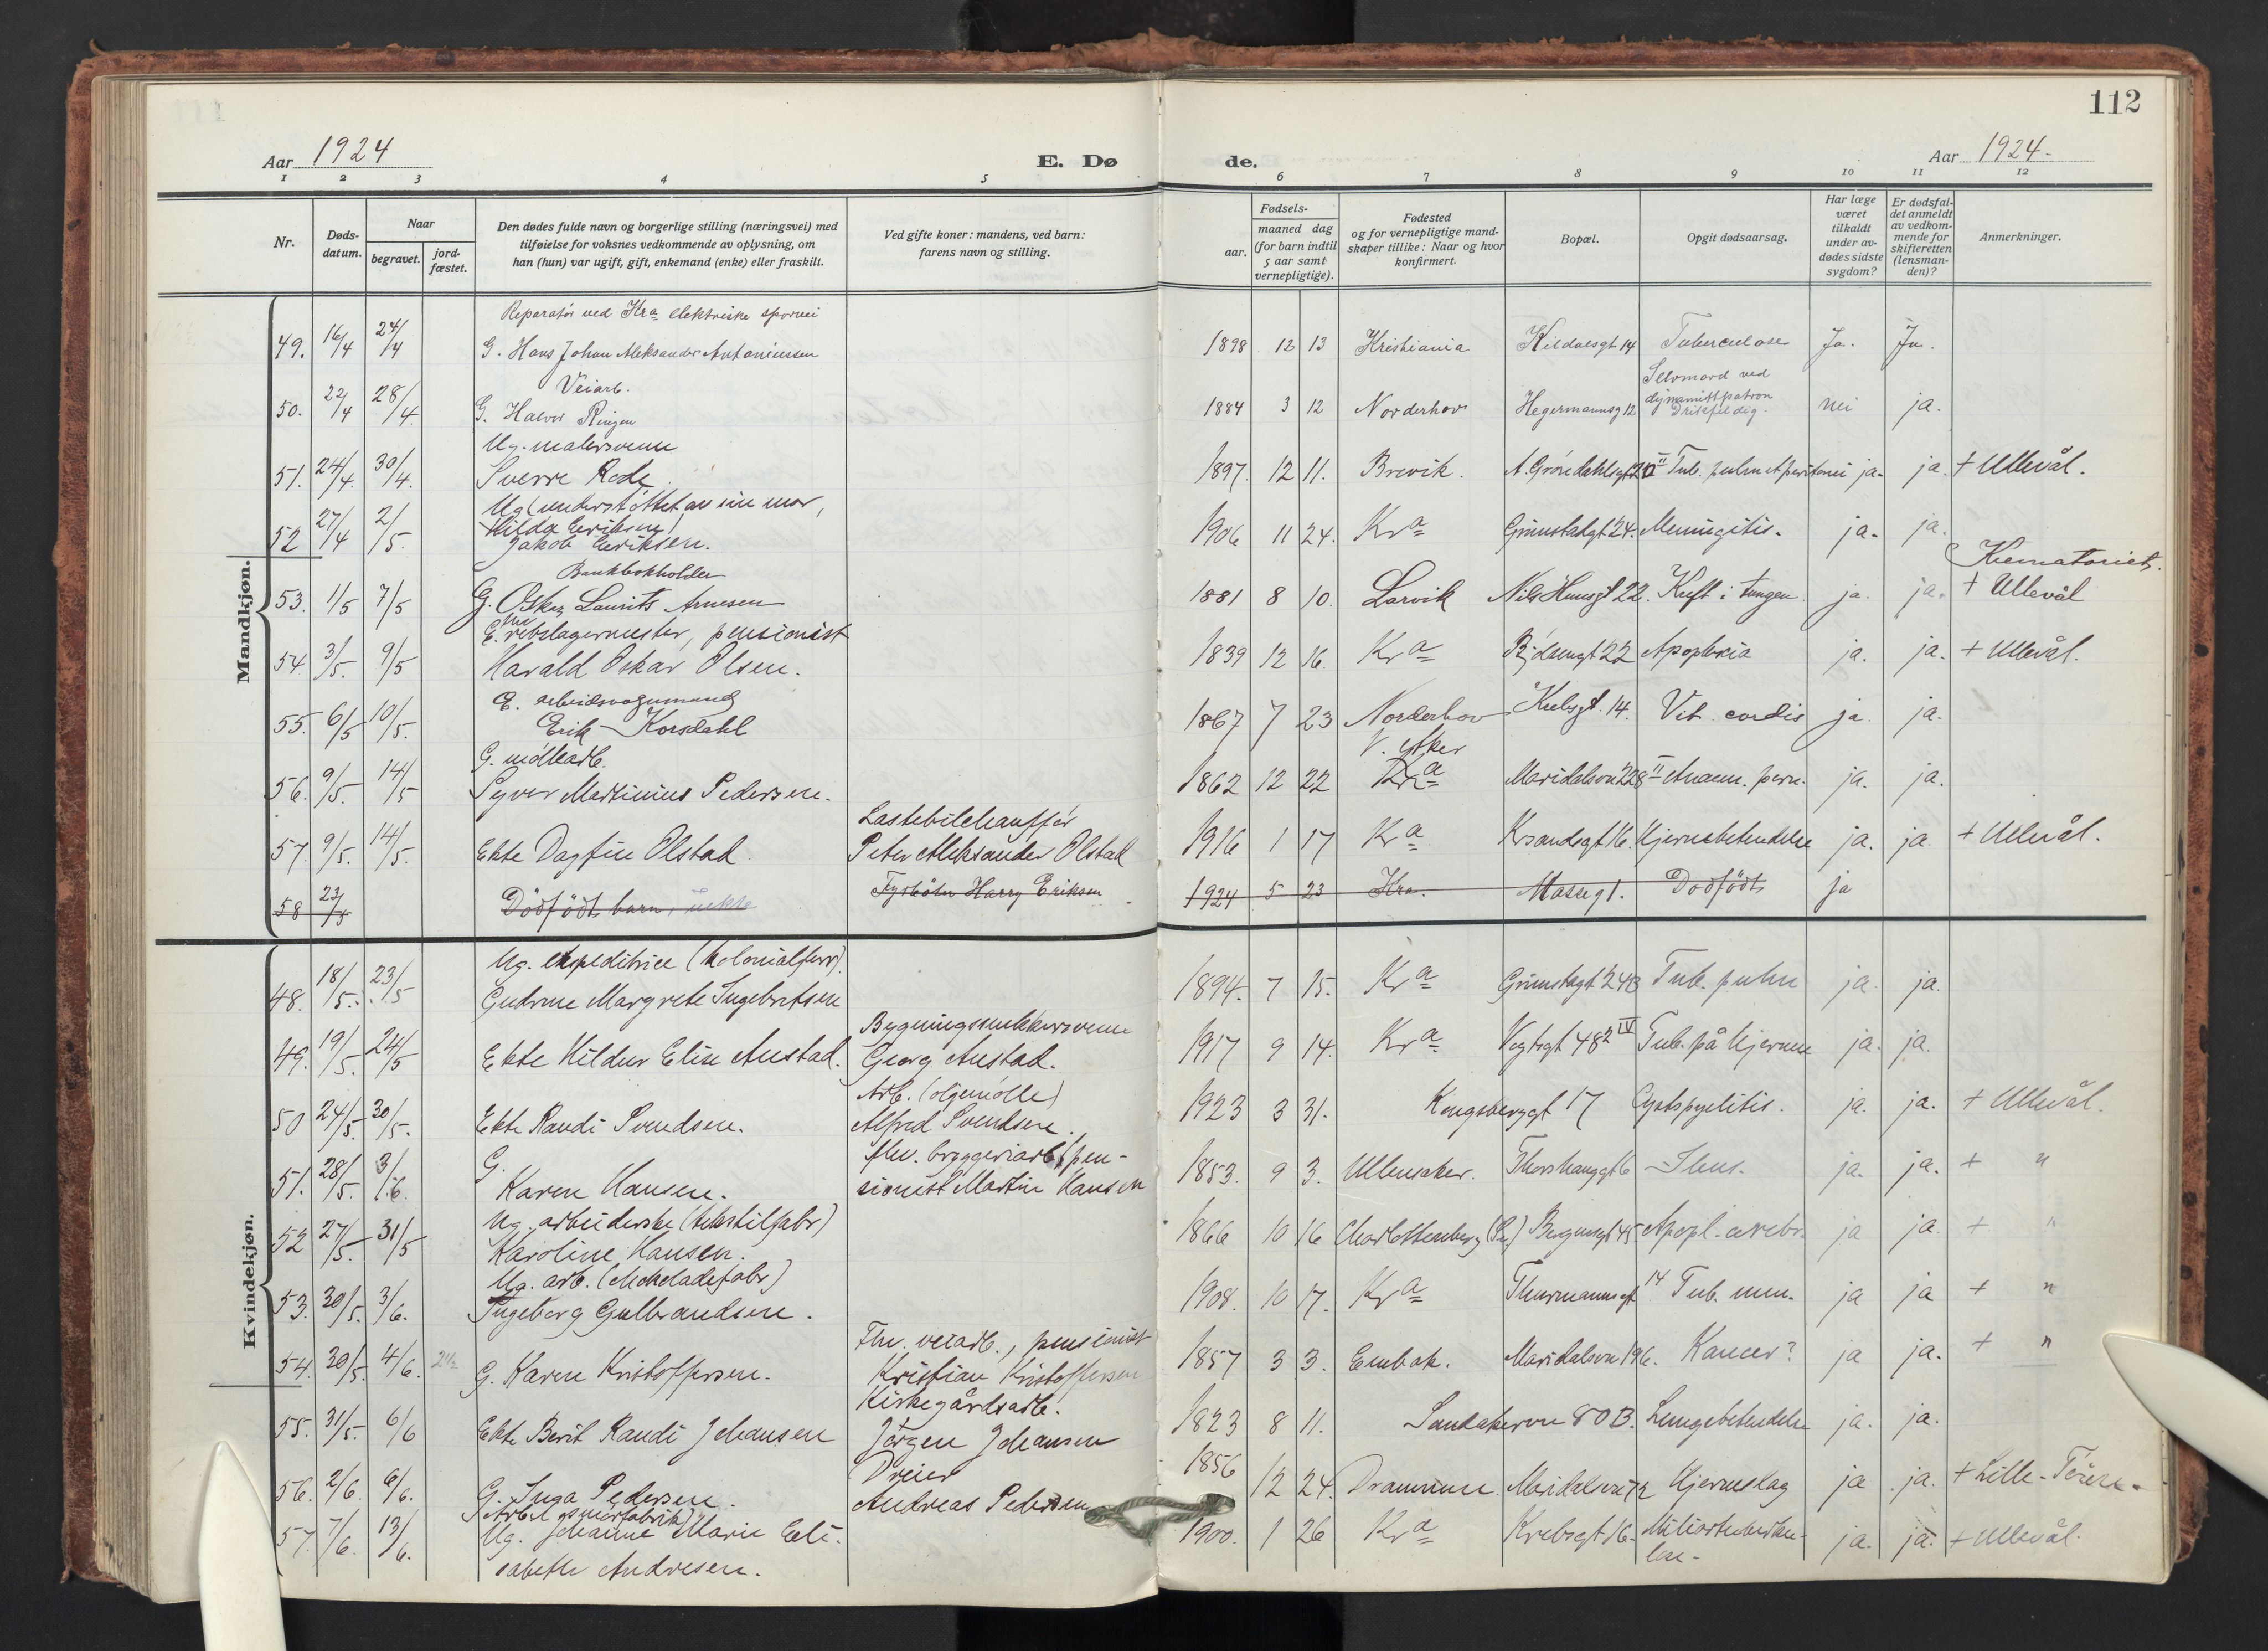 112
Aar 1924
E. Dø
de.
Aar 1924-
1 2 3 4 5 6 7 8 9 10 11 12
Nr.
Døds-
datum.
Naar
begravet.
jord-
fæstet.
Den dødes fulde navn og borgerlige stilling (næringsvei) med
tilføielse for voksnes vedkommende av oplysning, om
han (hun) var ugift, gift, enkemand (enke) eller fraskilt.
Ved gifte koner: mandens, ved barn:
farens navn og stilling.
Fødsels-
aar.
maaned dag
(for barn indtil
5 aar samt
vernepligtige).
Fødested
og for vernepligtige mand-
skaper tillike: Naar og hvor
konfirmert.
Bopæl.
Opgit dødsaarsag.
Har læge
været
tilkaldt
under av-
dødes sidste
sygdom?
Er dødsfal-
det anmeldt
av vedkom-
mende for
skifteretten
(lensman-
den)?
Anmerkninger.
Mandkjøn.
Reparatör ved Kra elektriske sporvei
49. 16/4 24/4 G. Hans Johan Aleksander Antoniussen 1898 12 13 Kristiania Kildalsgt 14 Tuberculose Ja. Ja.
Veiarb. Selvmord ved
50. 22/4 28/4 G. Halvor Ringen 1884 3 12 Norderhov Hegermannsg 12 dynamittpatron nei ja.
Drikfeldig.
Ug. malersvenn
51. 24/4. 30/4. Sverre Rode 1897. 12 11. Brevik. A. Gröndahlsgt 20 II Tub. pulm et peritonei ja. ja + Ullevål.
Ug (understöttet av sin mor,
Hilda Eriksen)
52 27/4 2/5. Jakob Eriksen. 1906 11 24. Kra Grimstadgt 24. Meningitis. ja. ja.
Bankbokholder Krematoriet.
53. 1/5 7/5 G. Oskar Laurits Arnesen 1881 8 10. Larvik Nils Huusgt 22. Kreft i tungen. ja. ja. + Ullevål
E. fhv rebslagermester, pensionist
54 3/5. 9/5 Harald Oskar Olsen. 1839 12 16. Kra 22 Apoplexia ja. ja. + Ullevål.
E. arbeidsvognmand
55. 6/5 10/5. Erik Korsdahl 1867 7 23 Norderhov 14. Vit. cordis ja ja.
G. möllearb. V. Aker
56. 9/5. 14/5 Syver Martinius Pedersen. 1862 12 22 Kra Maridalsvn 228 II Anaem. pern. ja. ja.
Lastebilchaufför
57. 9/5. 14/5. Ekte Dagfin Olstad. Peter Aleksander Olstad 1916 1 17 Kra Krsandsgt 16. Hjernebetendelse ja. ja + Ullevål.
58 23/5 Dödfödt barn, uekte Fyrböter Harry Eriksen 1924 5 23 Kra. 1. Dödfödt ja
Kvindekjøn.
Ug. ekspeditrice (kolonialforr)
48. 18/5. 23/5 Gudrune Margrete Ingebretsen 1894. 7 15. Kra Grimstagt 24B Tub. pulm ja. ja.
Bygningssnekkersvenn
49. 19/5. 24/5 Ekte Hildur Elise Austad. Georg Austad. 1917 9 14. Kra Vogtsgt 48 2 IV Tub. på hjernen ja. ja.
Arb. (oljemölle)
50 24/5. 30/5. Ekte Randi Svendsen. Alfred Svendsen. 1923 3 31. Kongsberggt 17 Cystopyelitis. ja. ja. + Ullevål.
G. fhv. bryggeriarb., pen-
51. 28/5. 3/6. Karen Hansen. sionist Martin Hansen 1853. 9 3. Ullensaker. Thorshauggt 6 Ileus. ja. ja. + "
Ug. arbeiderske (tekstilfabr)
52 27/5. 31/5 Karoline Hansen. 1866 10 16 Charlottenberg (Sv) Bergensgt 45 Apopl. cerebr. ja ja. + "
Ug. arb. (chokoladefabr)
53. 30/5. 3/6. Ingeborg Gulbrandsen. 1908. 10 17. Kra Thurmannsgt 14 Tub. men. ja ja + "
Fhv. veiarb., pensionist
54. 30/5. 4/6. G. Karen Kristoffersen. Kristian Kristoffersen 1857 3 3. Enebak. Maridalsvn 196. Kancer? ja ja. + "
Kirkegårdsarb.
55. 31/5. 6/6 Ekte Berit Randi Johansen Jörgen Johansen 1823 8 11. Sandakervn 80 B. Lungebetendelse ja. ja.
Dreier 1856
56. 2/6. 6/6. G. Inga Pedersen. Andreas Pedersen 12 24. Drammen Maridalsvn 72 Hjerneslag ja ja. + Lille-Töien.
57. 7/6. 13/6. Ug. Johanne Marie Eli- 1900. 1 26 Kra Krebsgt 16. Miliartuberku- ja. ja. + Ullevål.
sabeth Andresen. lose.